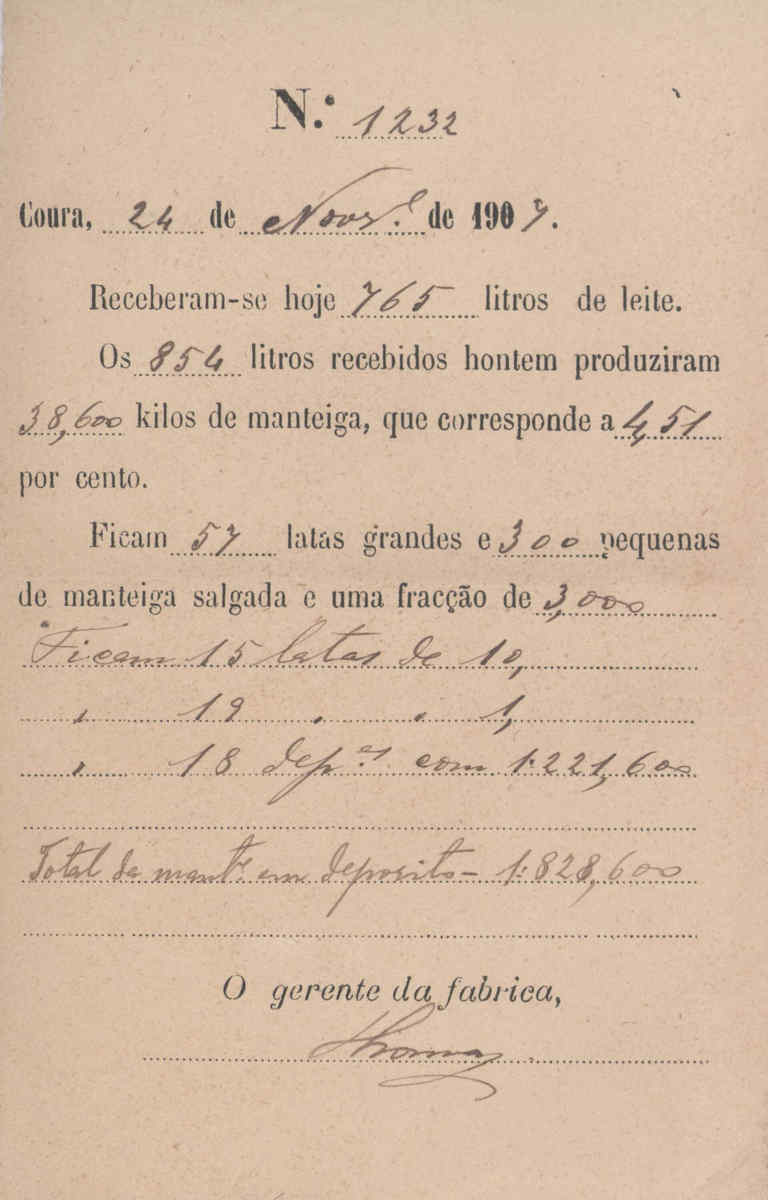 N.º 1232
Coura, 24 de Novr.º de 1907.
Receberam-se hoje 765 litros de leite.
Os 854 litros recebidos hontem produziram
38,600 kilos de manteiga, que corresponde a 4,51
por cento.
Ficam 57 latas grandes e 300 pequenas
de manteiga salgada e uma fracção de 3,000
Ficam 15 latas de 10,
" 19 " " 1,
" 18 dep.es com 1:221,600
Total da mant.ª em deposito - 1:828,600
O gerente da fabrica,